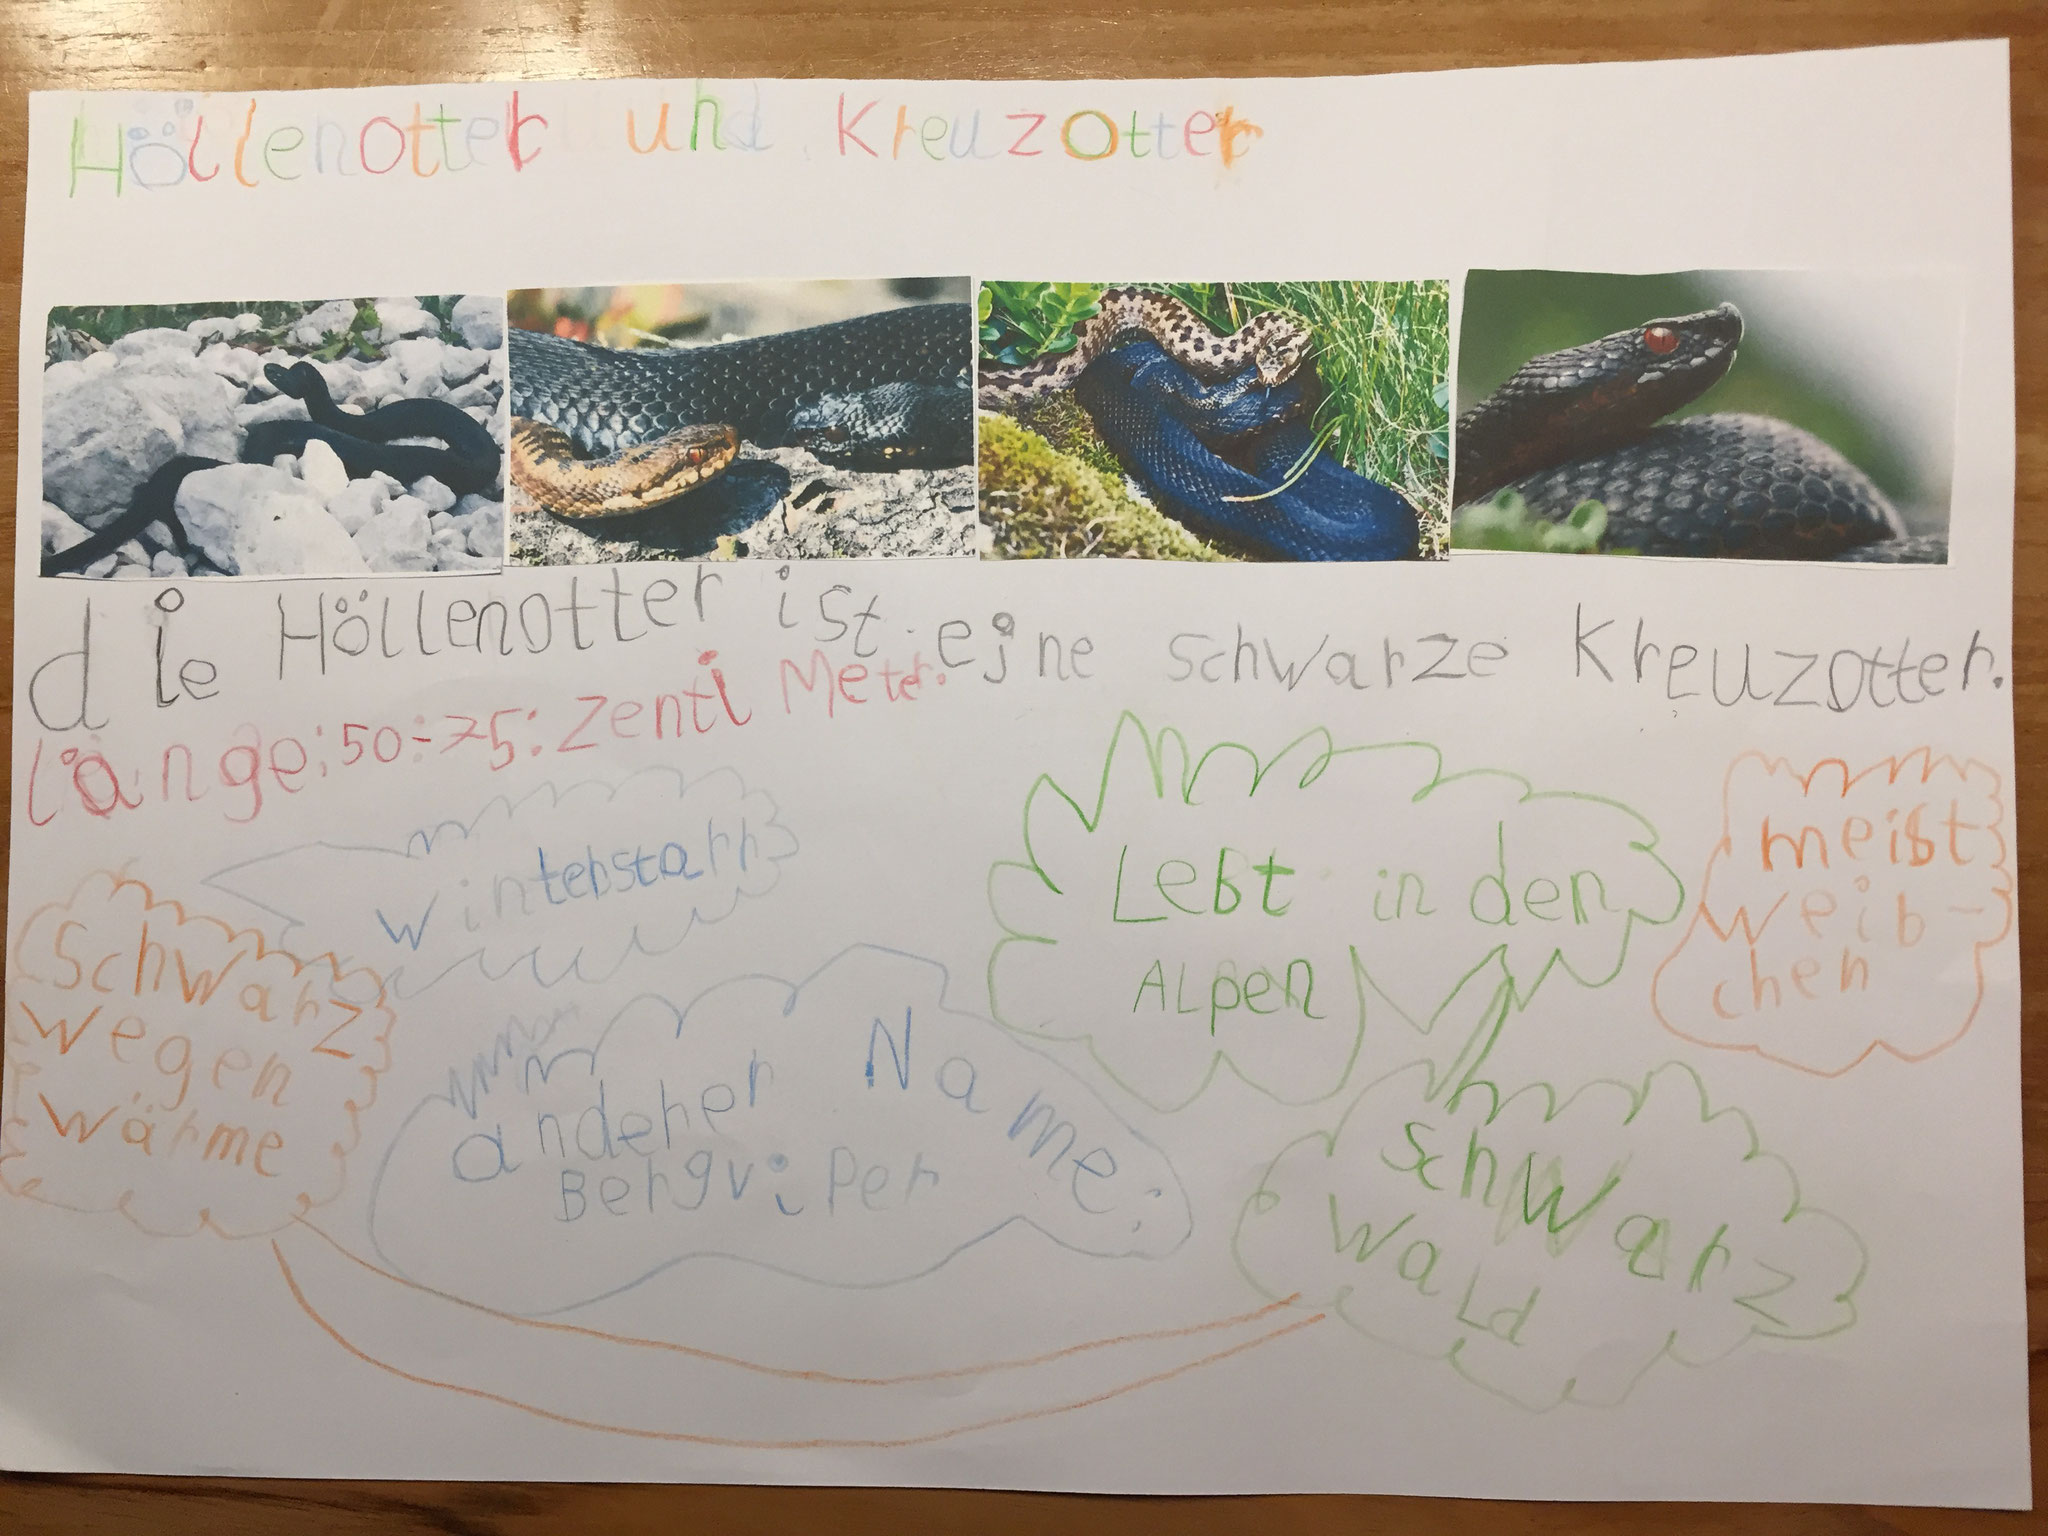 Höllenotter und Kreuzotter
die Höllenotter ist eine schwarze Kreuzotter.
länge:50-75:zentiMeter.
winterstarr
Lebt in den
ALpen
meist
weib-
chen
Schwarz
wegen
wärme
anderer Name:
Bergviper
Schwarz
waLd